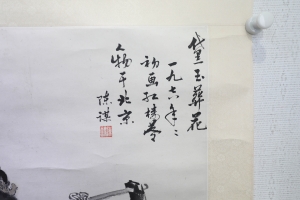 黛玉葬花
一九七六年二
初画红楼梦
人物于北京
陈谋